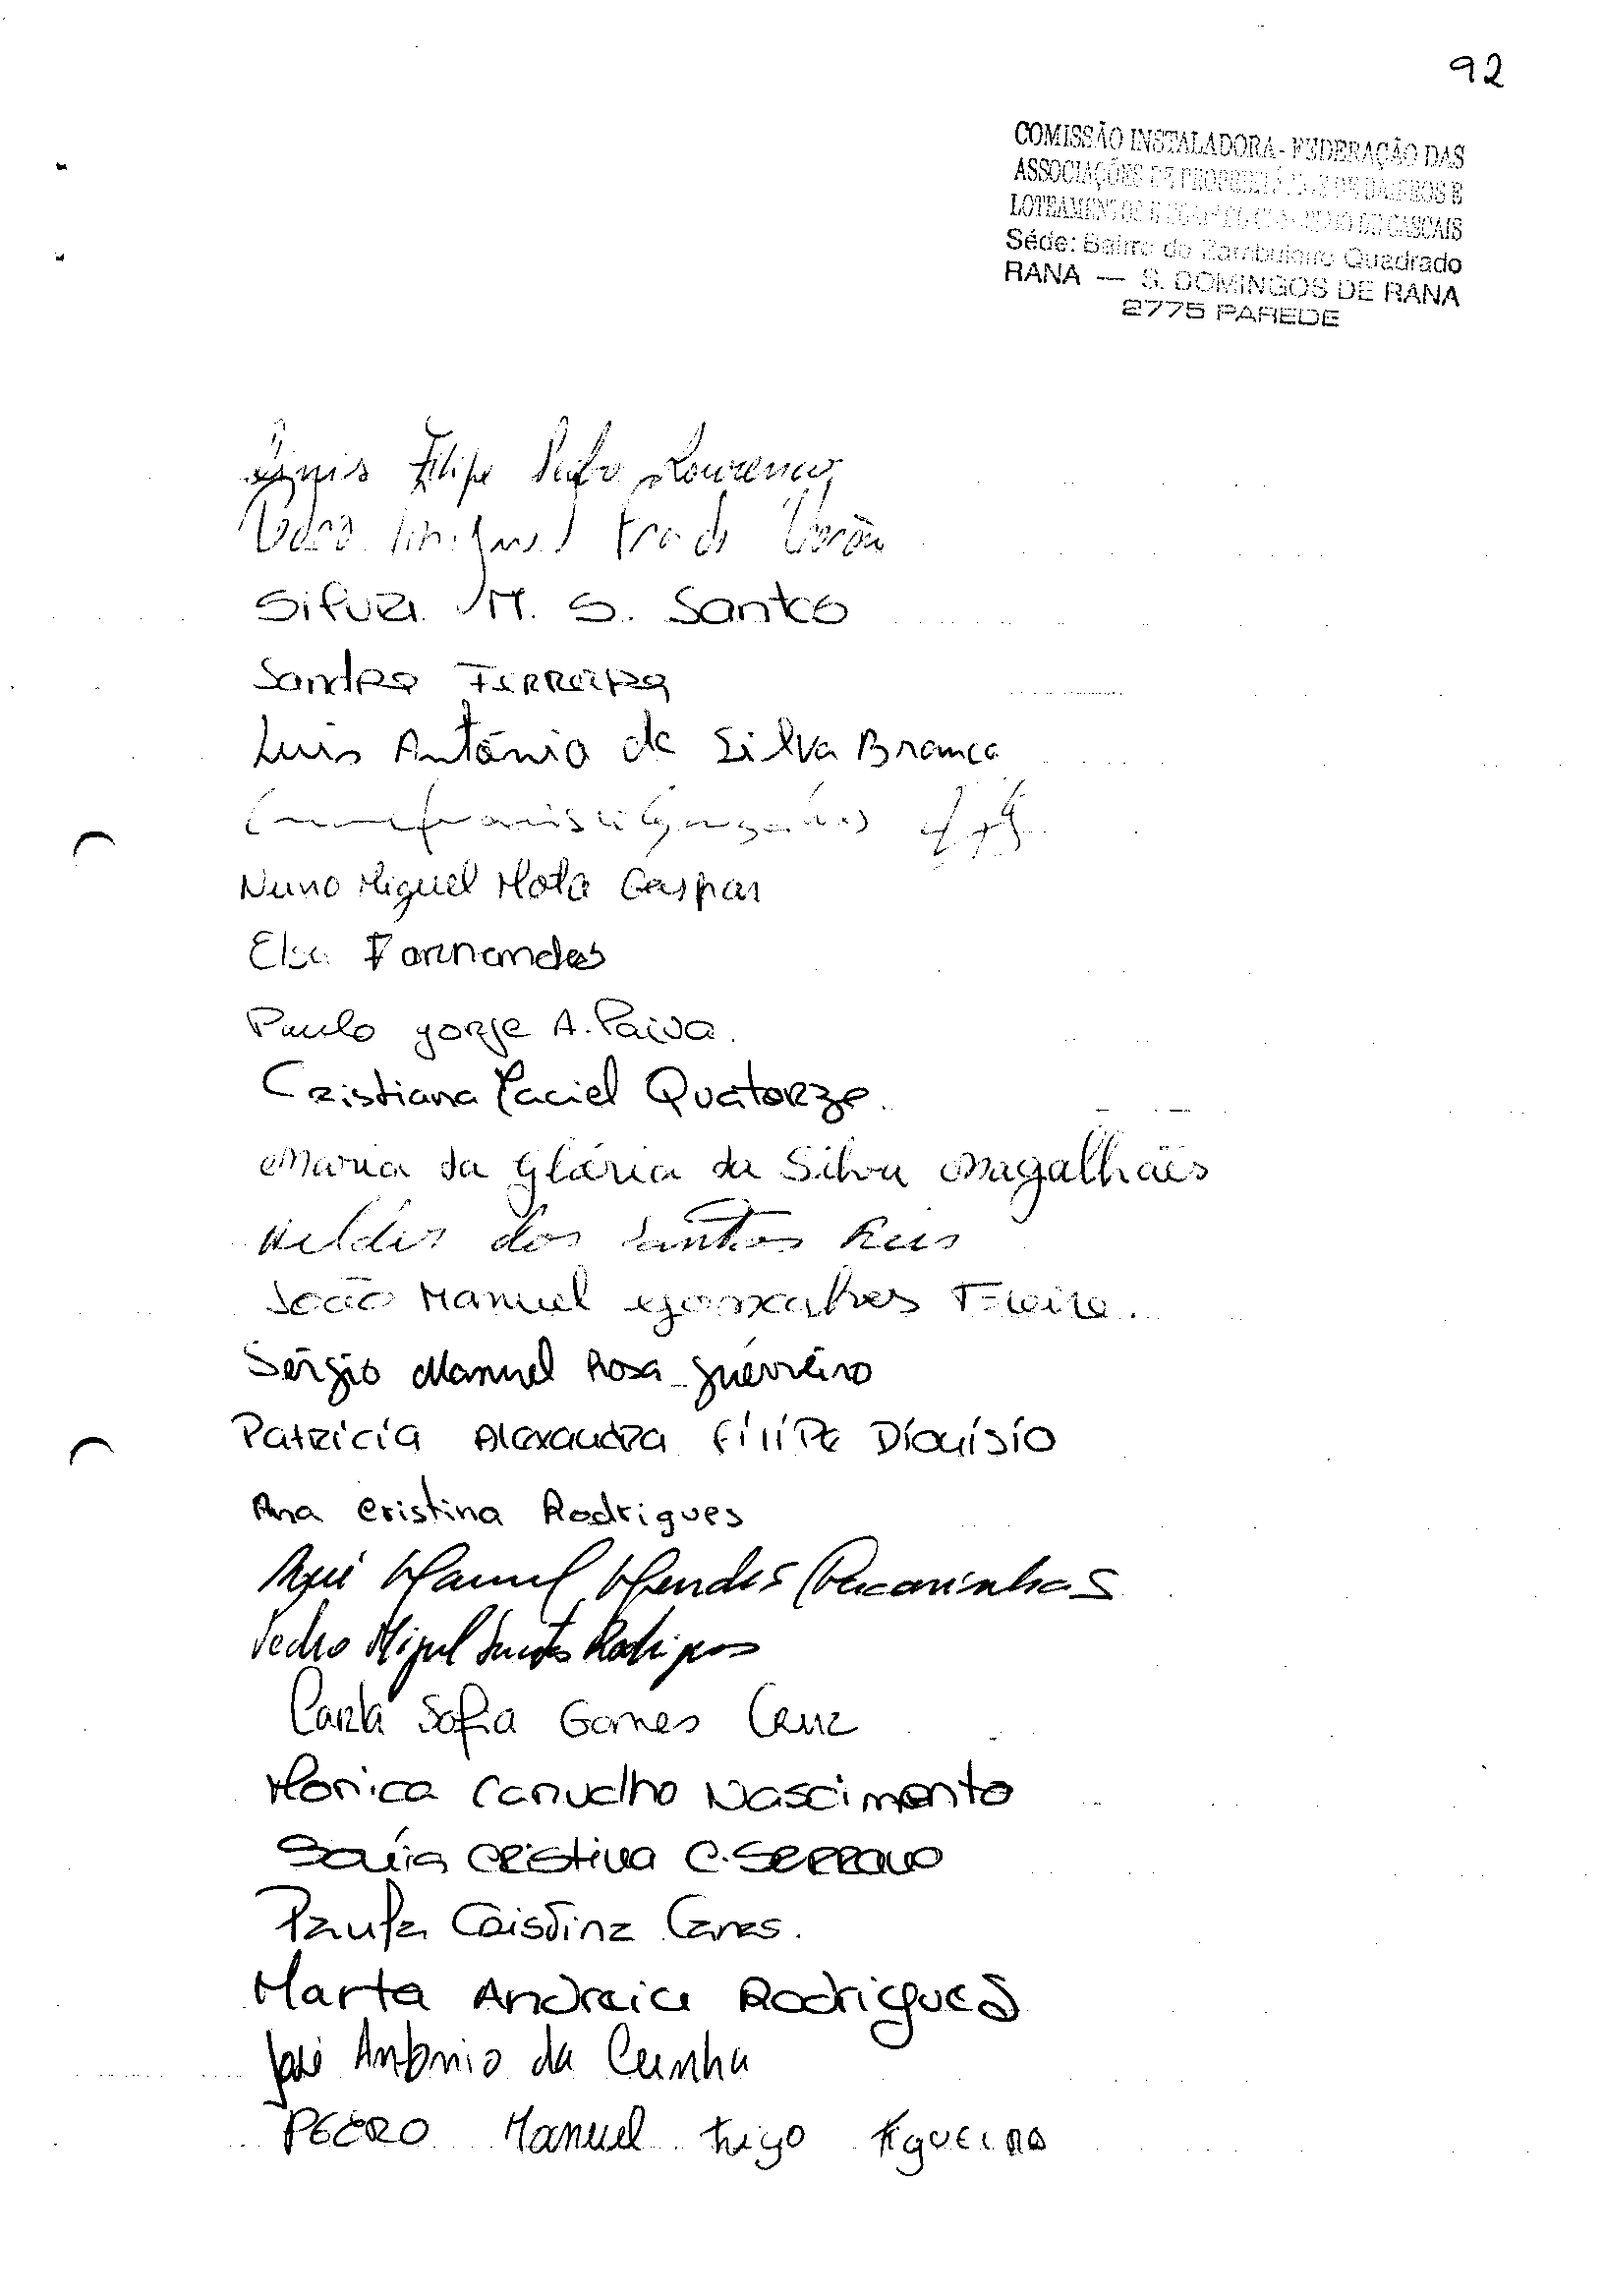 92
COMISSÃO INSTALADORA - FEDERAÇÃO DAS
ASSOCIAÇÕES DE PROPRIETÁRIOS DE BAIRROS E
LOTEAMENTOS E DE CASCAIS
Séde: Bairro do Zambuleiro Quadrado
RANA — S. DOMINGOS DE RANA
2775 PAREDE
Filipe Pedro Lourenço
Miguel
Silvia M. S. Santos
Sandra Ferreira
Luis António da Silva Branco
Nuno Miguel Mota Gaspar
Elsa Fernandes
Paulo Jorge A. Paiva.
Cristiana Maciel Quatorze.
Maria da Glória da Silva Magalhães
Helder dos Santos Reis
João Manuel Gonçalves Freire.
Sérgio Manuel Rosa Guerreiro
Patrícia Alexandra Filipe Dionísio
Ana Cristina Rodrigues
Manuel Mendes
Pedro Miguel Santos Rodrigues
Carla Sofia Gomes Cruz
Monica Carvalho Nascimento
Sónia Cristina C. Serrano
Paula Cristina
Marta Andreia Rodrigues
José António da Cunha
PEDRO Manuel Trigo Figueira